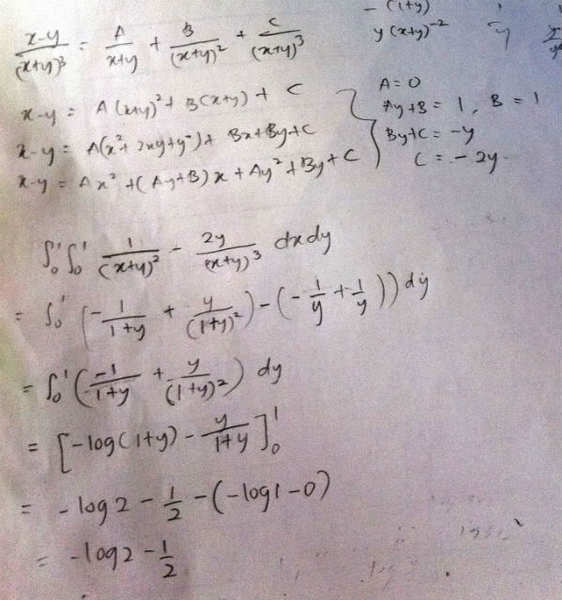 - (1+y)
y(x+y)⁻²
x-y/(x+y)³ = A/x+y + B/(x+y)² + C/(x+y)³
x-y = A(x+y)² + B(x+y) + C
x-y = A(x²+2xy+y²) + Bx+By+C
x-y = Ax² + (Ay+B)x + Ay² + By + C
A=0
Ay+B = 1, B = 1
By+C = -y
C = -2y.
∫₀¹∫₀¹ 1/(x+y)² - 2y/(x+y)³ dxdy
= ∫₀¹ (-1/1+y + y/(1+y)²) - (-1/y + 1/y)) dy
= ∫₀¹ (-1/1+y + y/(1+y)²) dy
= [-log(1+y) - y/1+y]₀¹
= -log2 - 1/2 - (-log1-0)
= -log2 - 1/2